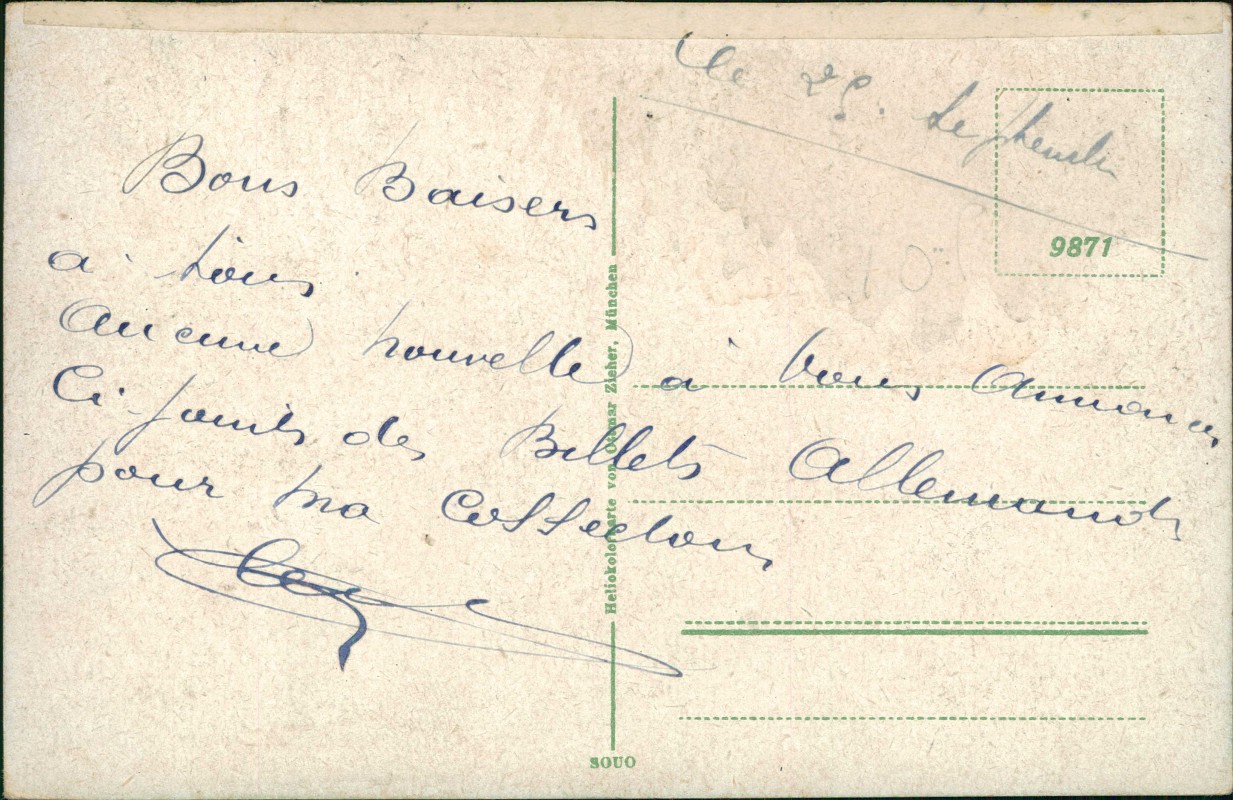 Le 25. Septembre
9871
10
Bons Baisers
a tous
Aucune nouvelle à vous annoncer
Ci-joints des Billets Allemands
pour ma Collection
Heliokolorkarte von Ottmar Zieher, München
SOUO